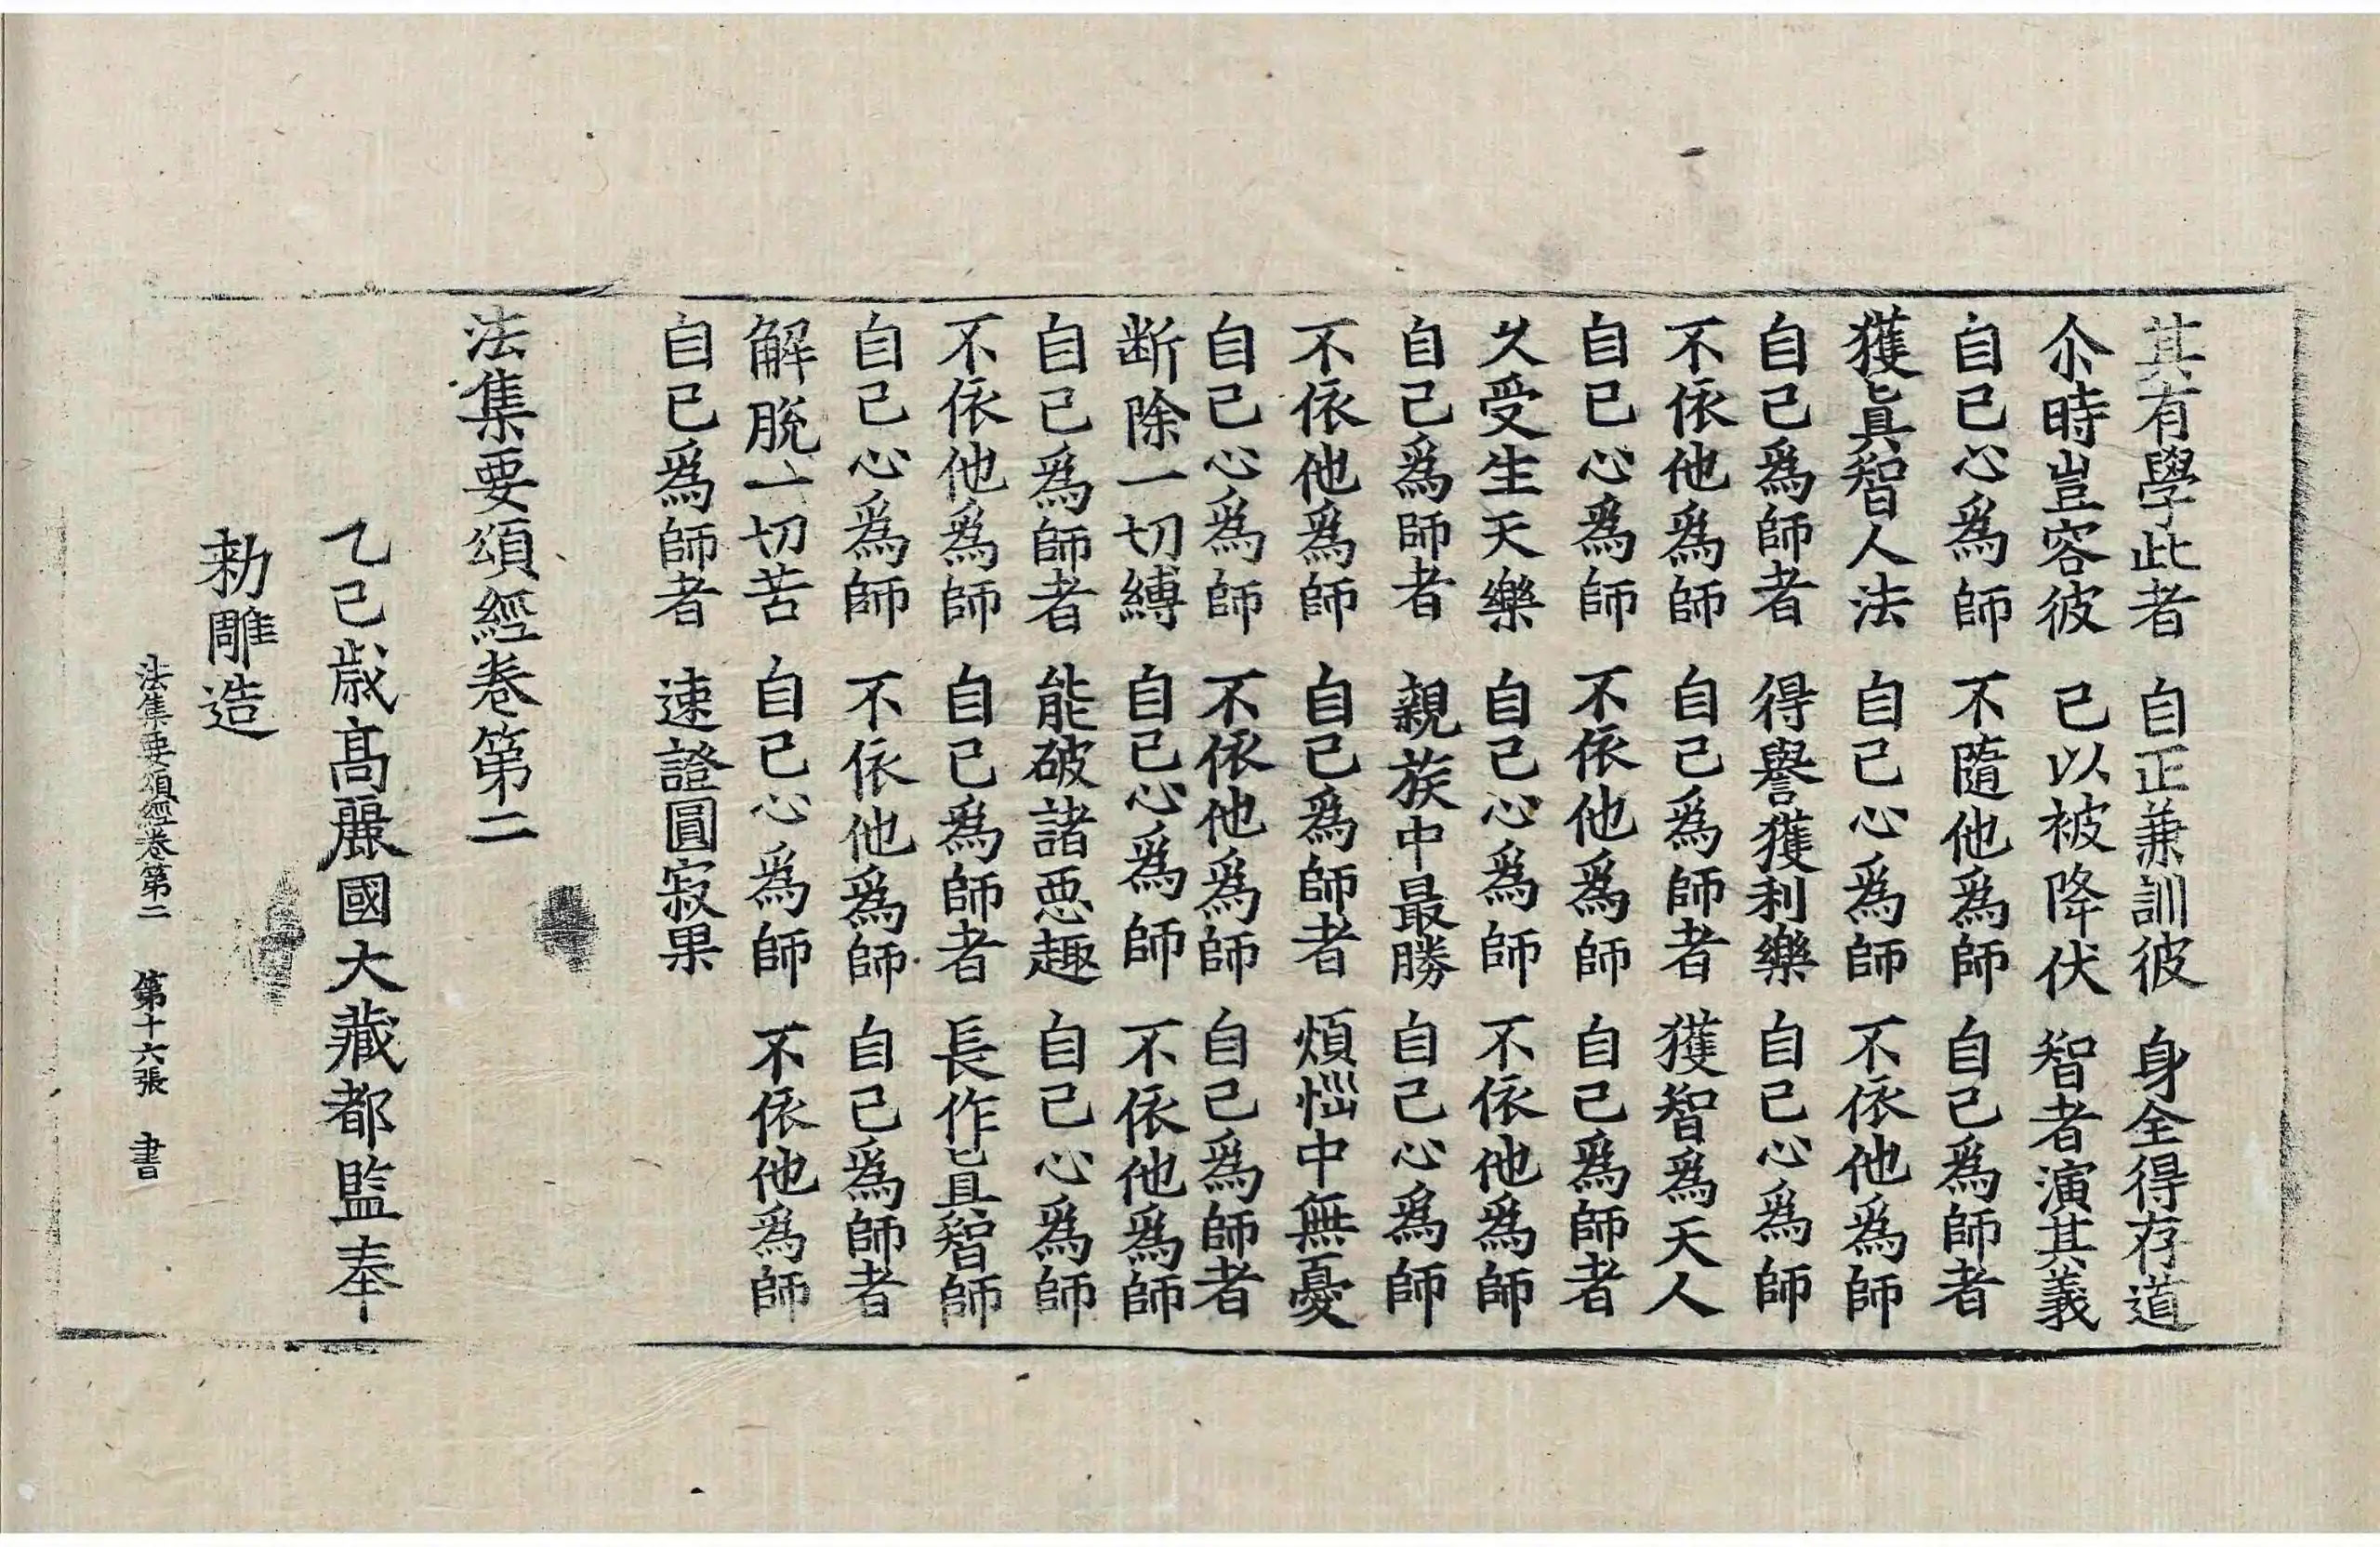 其有學此者 自正兼訓彼 身全得存道
尒時豈容彼 已以被降伏 智者演其義
自己心爲師 不隨他爲師 自己爲師者
獲眞智人法 自己心爲師 不依他爲師
自己爲師者 得譽獲利樂 自己心爲師
不依他爲師 自己爲師者 獲智爲天人
自己心爲師 不依他爲師 自己爲師者
久受生天樂 自己心爲師 不依他爲師
自己爲師者 親族中最勝 自己心爲師
不依他爲師 自己爲師者 煩惱中無憂
自己心爲師 不依他爲師 自己爲師者
断除一切縛 自己心爲師 不依他爲師
自己爲師者 能破諸惡趣 自己心爲師
不依他爲師 自己爲師者 長作眞智師
自己心爲師 不依他爲師 自己爲師者
解脫一切苦 自己心爲師 不依他爲師
自己爲師者 速證圓寂果
法集要頌經卷第二
乙巳歲高麗國大藏都監奉
勑雕造
法集要頌經卷第二 第十六張 書